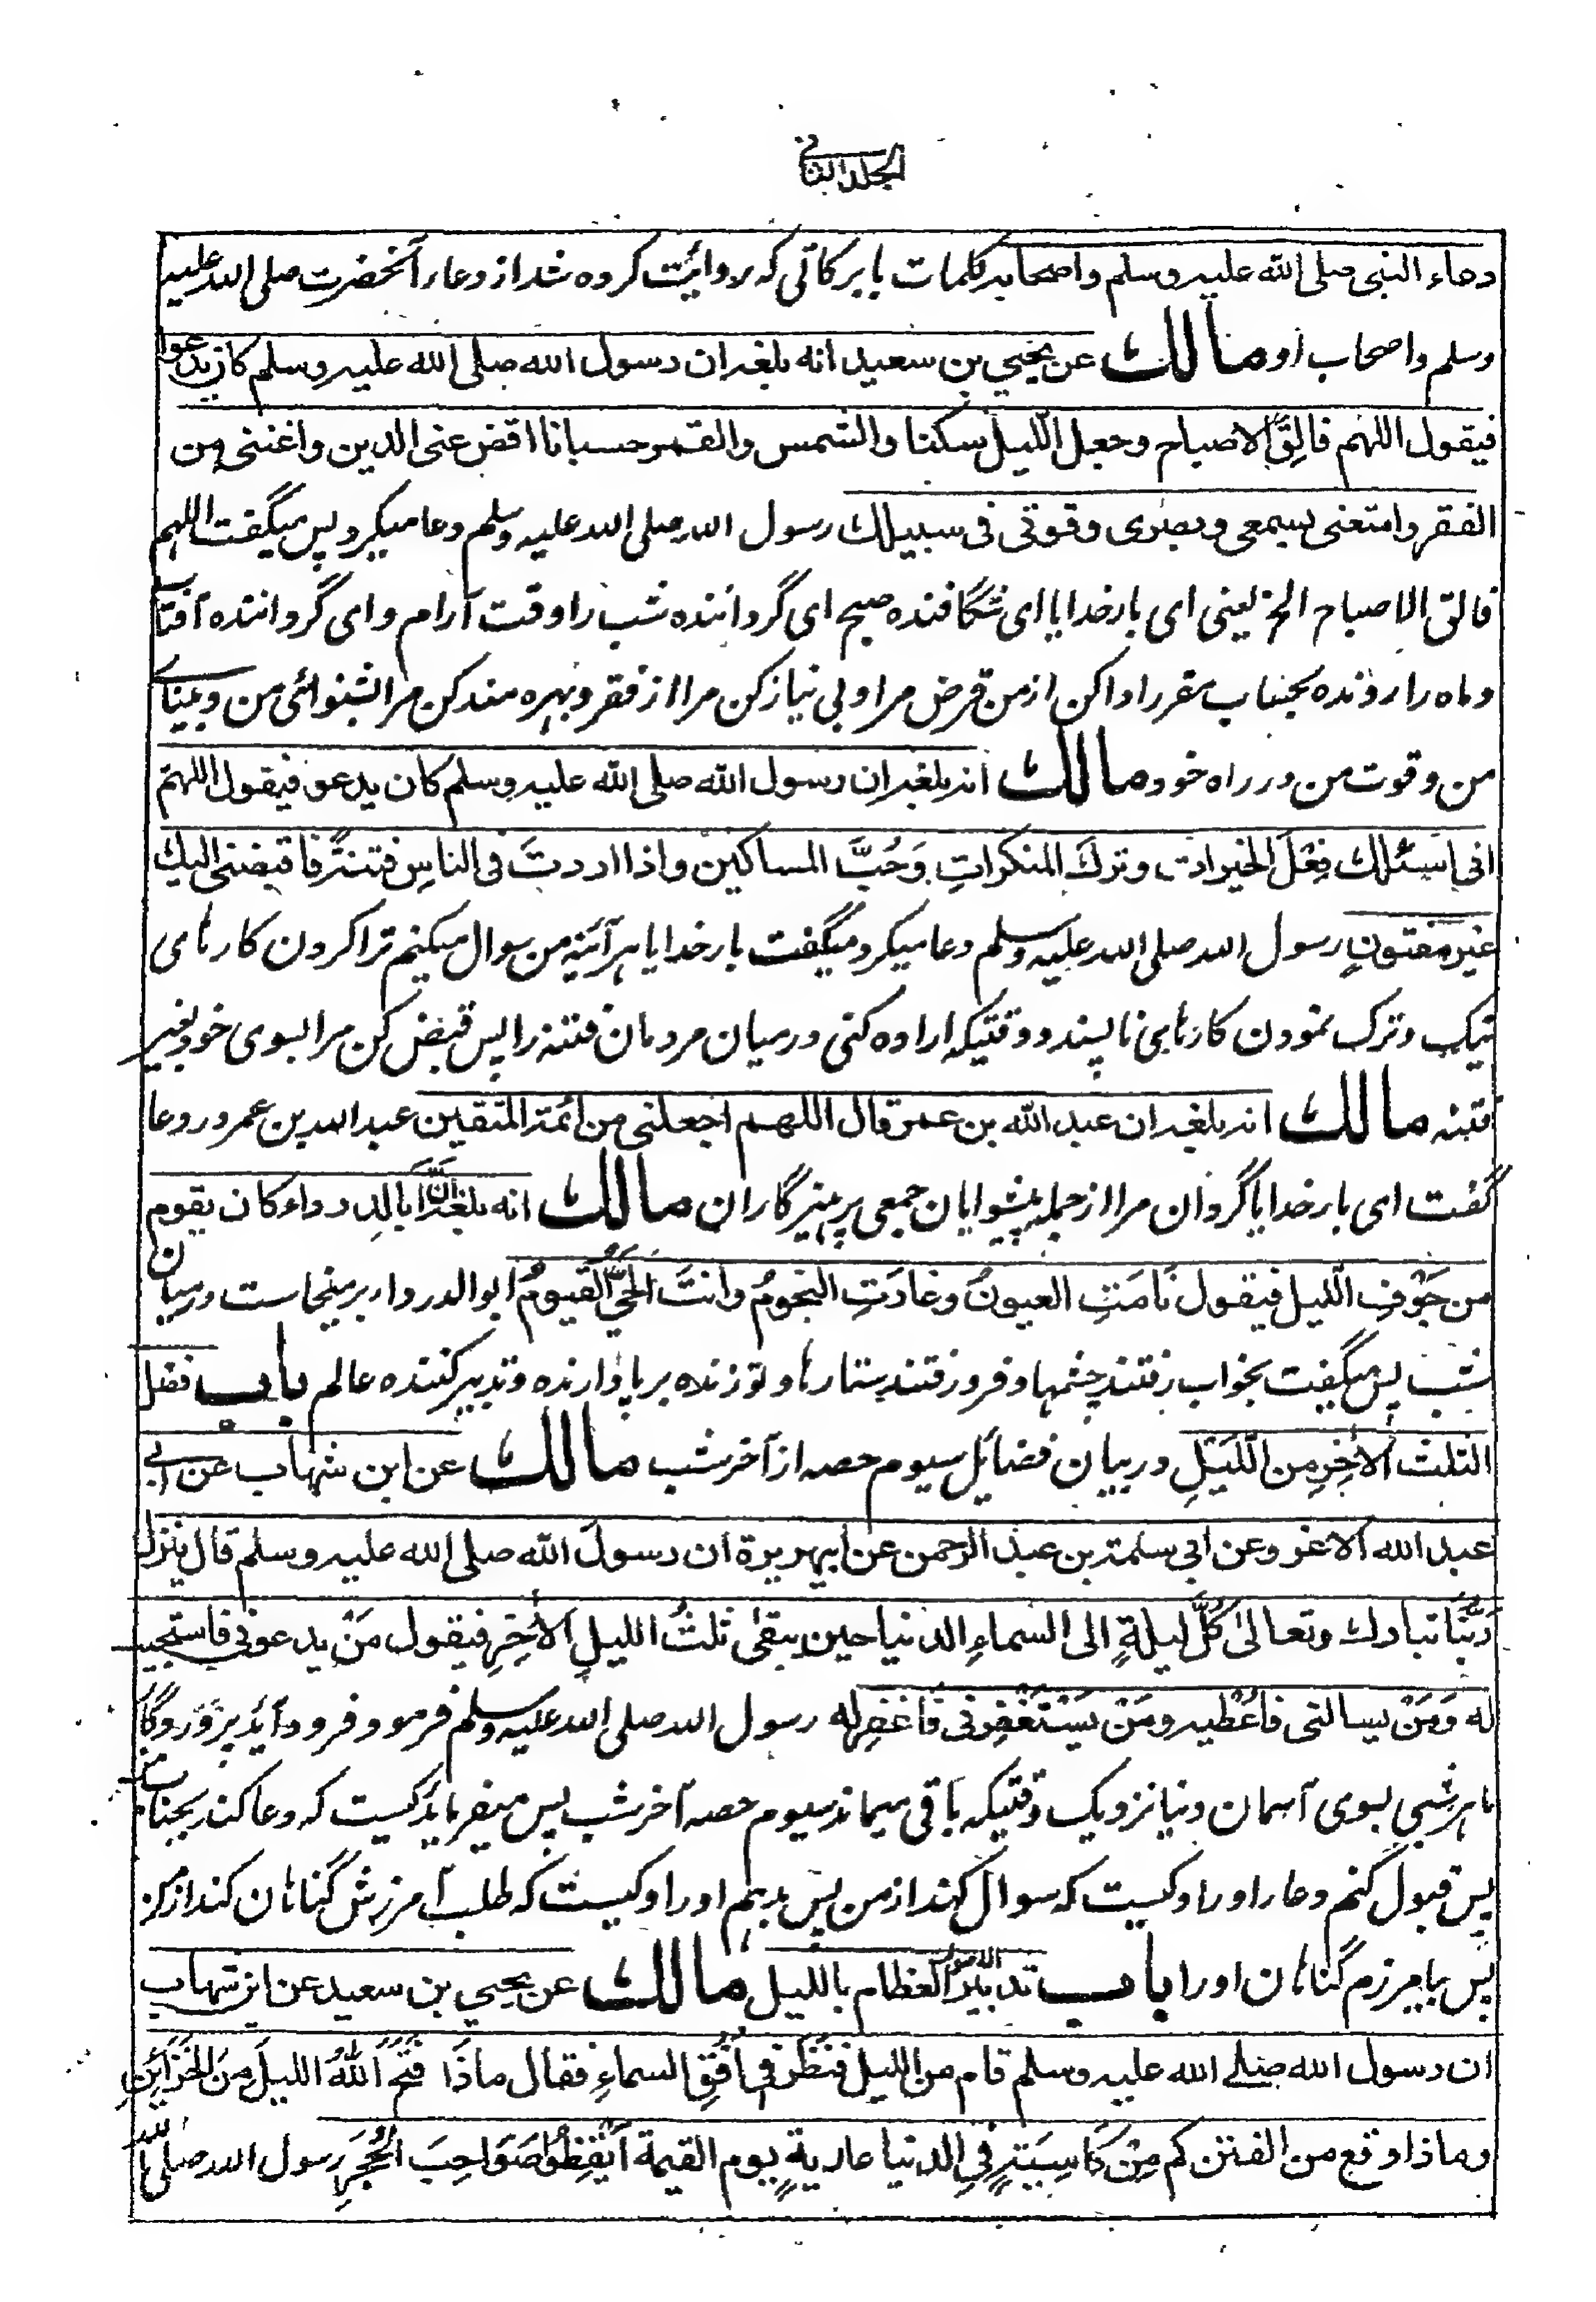 الجلد الثانی
دعاء النبی صلی الله علیه وسلم واصحابه کلمات بابرکاتی که روایت کرده شد از دعاء آنحضرت صلی الله علیه
وسلم واصحاب او مالك عن یحیی بن سعید انه بلغه ان رسول الله صلی الله علیه وسلم کان یدعوا
فیقول اللهم فالِقَ الاصباح وجعل اللّیل سکنا والشمس والقمر حسبانا اقض عنی الدین واغننی من
الفقر وامتعنی بسمعی وبصری وقوتی فی سبیلك رسول الله صلی الله علیه وسلم دعا میکرد پس میگفت اللهم
فالق الاصباح الخ یعنی ای بار خدایا ای شگافنده صبح ای گرداننده شب را وقت آرام وای گرداننده آفتاب
وماه را رونده بحساب مقرر ادا کن از من قرض مرا و بی نیاز کن مرا از فقر وبهره مند کن مرا بشنوائی من وبینای
من وقوت من در راه خود مالك انه بلغه ان رسول الله صلی الله علیه وسلم کان یدعو فیقول اللهمّ
انی اسئلك فِعْلَ الخیرات وترْكَ المنکراتِ وَحُبَّ المساکین واذا اردتَ فی الناسِ فتنةً فاقبضنی الیك
غیر مفتونٍ رسول الله صلی الله علیه وسلم دعا میکرد ومیگفت بار خدایا هر آئینه من سوال میکنم ترا کردن کارهای
نیک وترک نمودن کارهای ناپسند ووقتیکه اراده کنی در میان مردمان فتنه را پس قبض کن مرا بسوی خود بغیر
فتنه مالك انه بلغه ان عبد الله بن عمر قال اللهم اجعلنی من ائمة المتقین عبد الله بن عمر در دعا
گفت ای بار خدایا گردان مرا از جمله پیشوایان جمعی پرهیزگاران مالك انه بلغه انّ ابا الدرداء کان یقوم
من جَوْفِ اللّیل فیقول نَامَتِ العیونُ وغارَتِ النجومُ وانتَ الحیُّ القیومُ ابو الدرداء بر میخاست در میان
شب پس میگفت بخواب رفتند چشمها وفرو رفتند ستارها وتو زنده بر پا دارنده وتدبیر کننده عالم باب فضل
الثلث الاٰخِرِ من اللّیْلِ در بیان فضائل سیوم حصه از آخر شب مالك عن ابن شهاب عن ابی
عبد الله الاغر وعن ابی سلمة بن عبد الرحمن عن ابیهریرة ان رسولَ الله صلی الله علیه وسلم قال ینزل
رَبُّنَا تبارك وتعالیٰ کُلَّ لیلةٍ الی السماءِ الدنیا حین یبقیٰ ثلثُ اللیلِ الاٰخِرِ فیقول مَنْ یدعونی فاستجیب
له وَمَنْ یسالنی فاُعْطیه ومَنْ یَسْتَغْفِرُنی فَاَغْفِرله رسول الله صلی الله علیه وسلم فرمود فرود آید پروردگار
ما هر شبی بسوی آسمان دنیا نزدیک وقتیکه باقی میماند سیوم حصه آخر شب پس میفرماید کیست که دعا کند بجناب من
پس قبول کنم دعا را او را وکیست که سوال کند از من پس بدهم او را وکیست که طلب آمرزش گناهان کند از من
پس بیامرزم گناهان او را باب تدبیر الامور العظام باللیل مالك عن یحیی بن سعید عن ابن شهاب
ان رسول الله صلے الله علیه وسلم قام من اللیل فنَظَرَ فی اُفُقِ السماءِ فقال ماذَا فُتِحُ اللهُ اللیلَ مِنَ الخَزَائِنِ
وماذا وقع من الفتن کم مِنْ کَاسِیَةٍ فِی الدنیا عاریةٍ یوم القیمة اَیْقِظُوا صَوَاحِبَ الْحُجَرِ رسول الله صلی الله